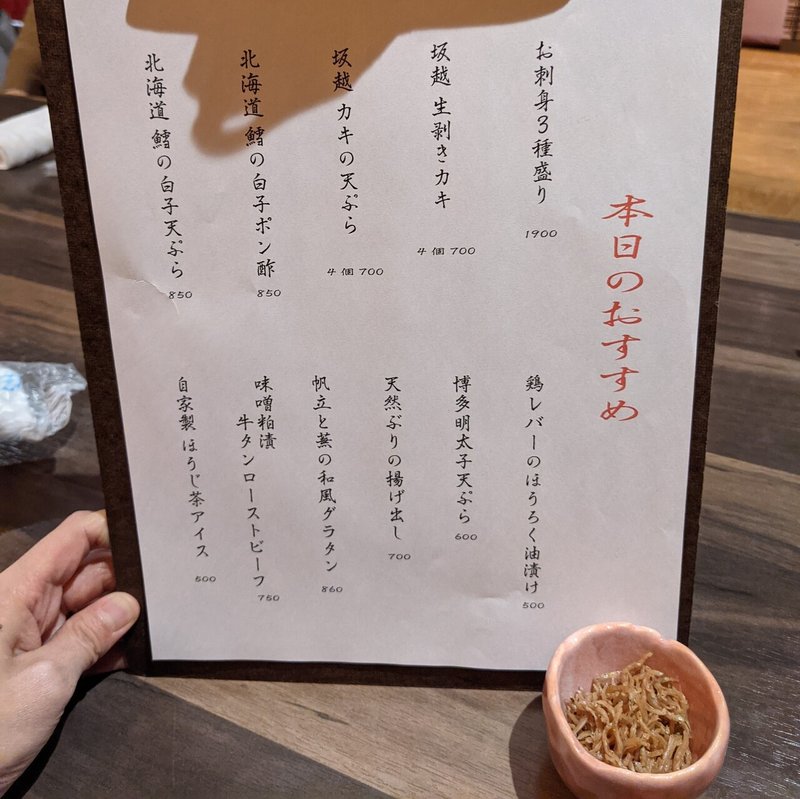 本日のおすすめ
お刺身3種盛り
1900
坂越 生剥きカキ
4個 700
坂越 カキの天ぷら
4個 700
北海道 鱈の白子ポン酢
850
北海道 鱈の白子天ぷら
850
鶏レバーのほうろく油漬け
500
博多明太子天ぷら
600
天然ぶりの揚げ出し
700
帆立と蕪の和風グラタン
860
味噌粕漬
牛タンローストビーフ
750
自家製 ほうじ茶アイス
500